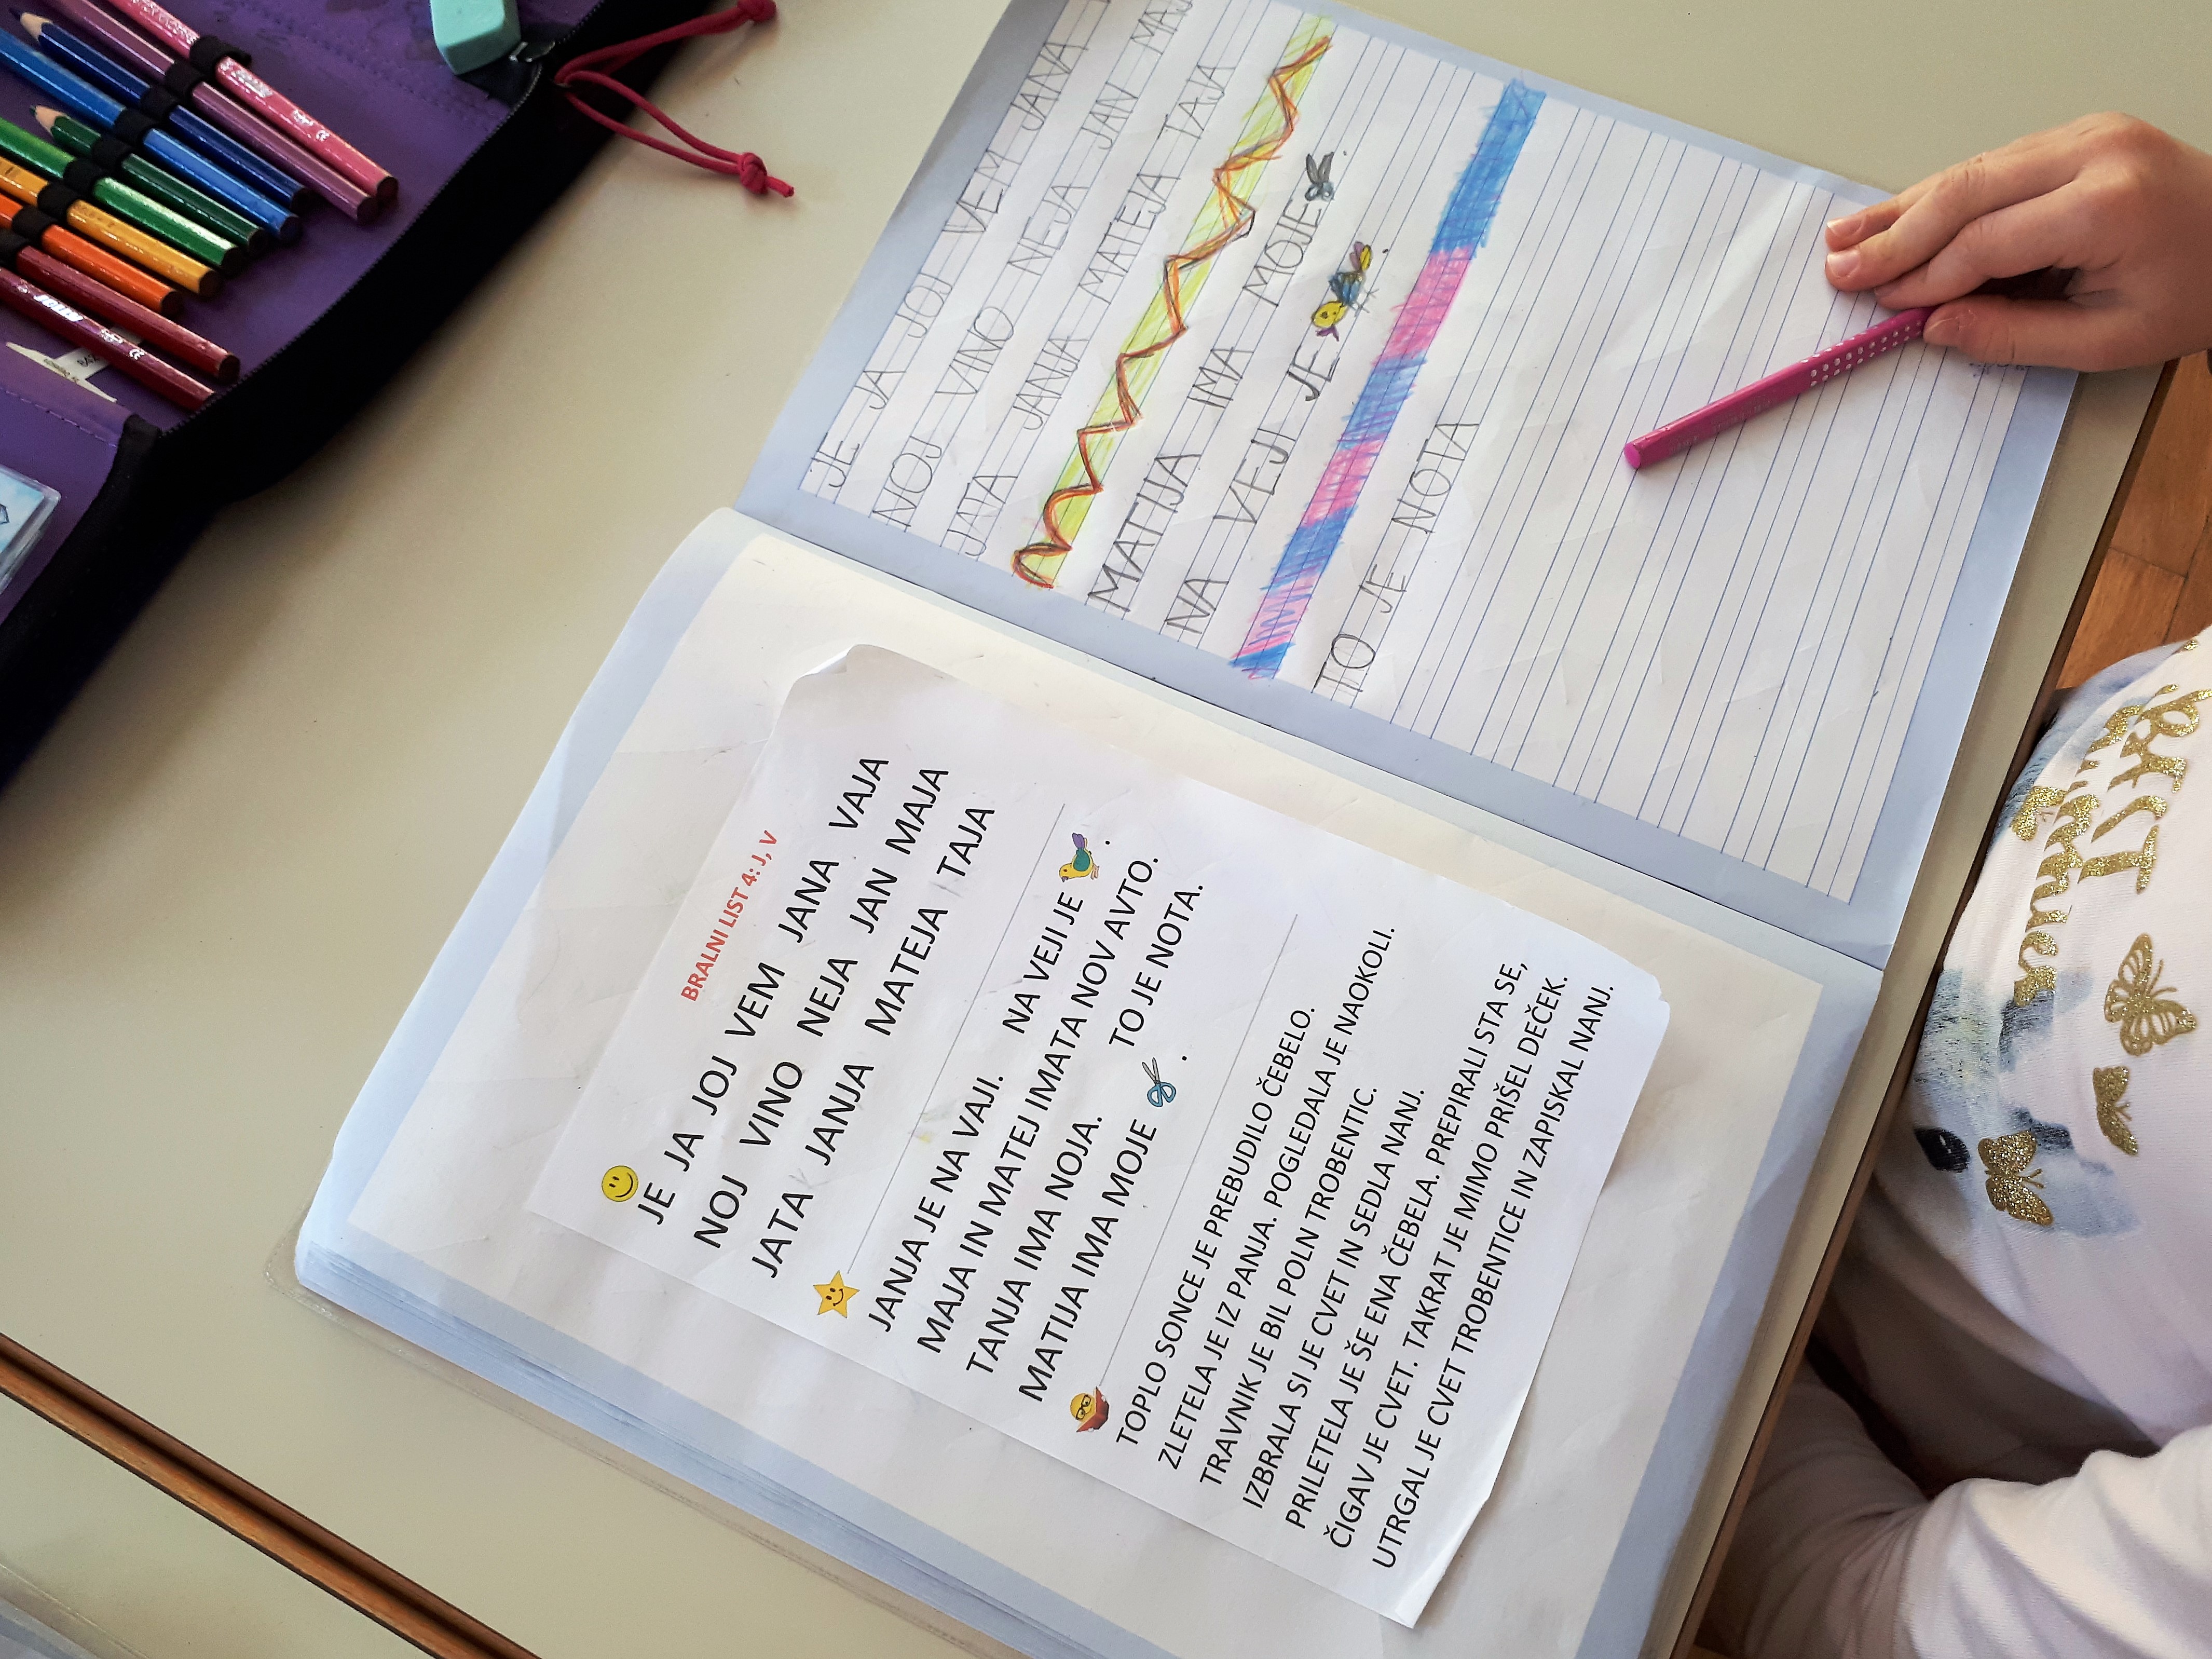 BRALNI LIST 4: J, V
JE JA JOJ VEM JANA VAJA
NOJ VINO NEJA JAN MAJA
JATA JANJA MATEJA TAJA
JANJA JE NA VAJI. NA VEJI JE .
MAJA IN MATEJ IMATA NOV AVTO.
TANJA IMA NOJA. TO JE NOTA.
MATIJA IMA MOJE .
TOPLO SONCE JE PREBUDILO ČEBELO.
ZLETELA JE IZ PANJA. POGLEDALA JE NAOKOLI.
TRAVNIK JE BIL POLN TROBENTIC.
IZBRALA SI JE CVET IN SEDLA NANJ.
PRILETELA JE ŠE ENA ČEBELA. PREPIRALI STA SE,
ČIGAV JE CVET. TAKRAT JE MIMO PRIŠEL DEČEK.
UTRGAL JE CVET TROBENTICE IN ZAPISKAL NANJ.
JE JA JOJ VEM JANA
NOJ VINO NEJA JAN MAJA
JATA JANJA MATEJA TAJA
MATIJA IMA MOJE .
NA VEJI JE .
TO JE NOTA